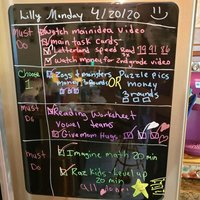 Lilly Monday 4/20/20
Must Do
Watch main idea video
main task cards
Letterland Speed Read 99 91 86
Watch money for 2nd grade video
Choose
Zags & monsters
money 3 rounds
OR
Puzzle pics
money
3 rounds
Must Do
Reading Worksheet
Vowel teams
Give mom Hugs
must Do
Imagine math 20 min
Raz Kids - level up
20 min
all done!